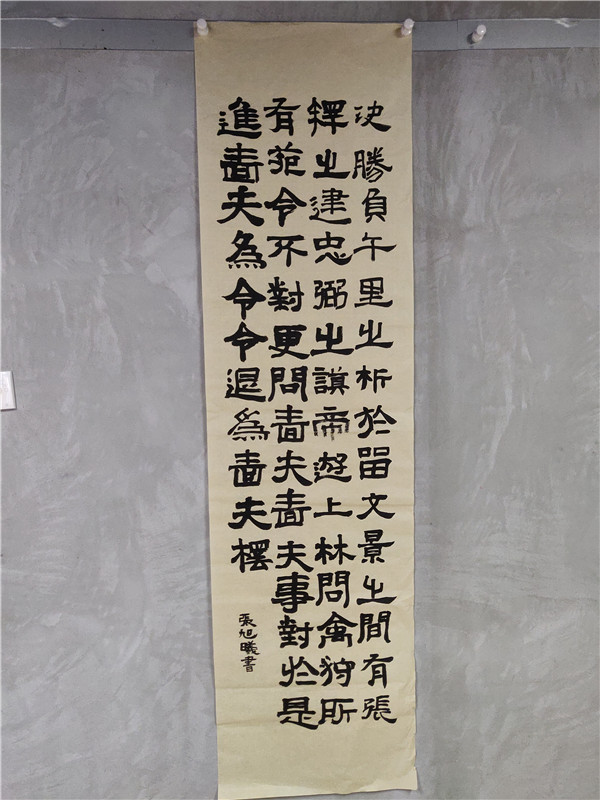 決勝負午里之析於留文景之間有張
釋之建忠弼之謨帝遊上林問禽狩所
有苑令不對更問嗇夫嗇夫事對於是
進嗇夫為令令退為嗇夫釋
張旭曦書